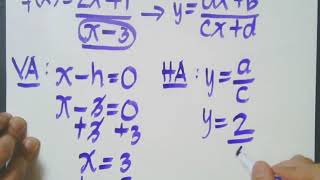 f(x) = 2x+1 / x-3 → y = ax+b / cx+d
VA: x-h=0
x-3=0
+3 +3
x=3
HA: y = a/c
y = 2